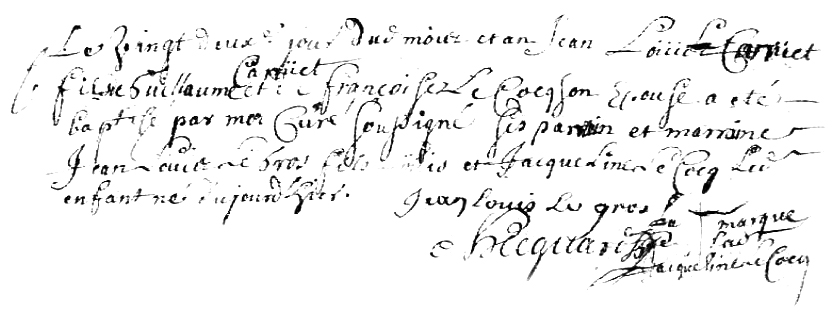 Le Vingt deux.e jour dud mois et an Jean Louis Caruet
Caruet
fils de Guillaume et de Francoise Le Cocq son Epouse a eté
baptise par moi Curé soussigné ses parain et marrine
Jean Louis Le Gros et Jacqueline Le Cocq led
enfant né d'aujourd'hier. Jean Louis le gros
la marque
lad
Jacqueline le Cocq